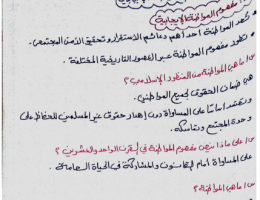 ١- مفهوم المواطنة الإيجابية
• تعد المواطنة أحد أهم دعائم الاستقرار وتحقيق الأمن المجتمعي.
• تطور مفهوم المواطنة عبر العصور التاريخية المختلفة.
س/ ما هي المواطنة من المنظور الإسلامي؟
هي ضمان الحقوق لجميع المواطنين
وتعتمد أساسًا على المساواة دون إهدار حقوق غير المسلمين للحفاظ على
وحدة المجتمع وتماسكه.
س/ على ماذا ركز مفهوم المواطنة في القرن الواحد والعشرين؟
على المساواة أمام القانون والمشاركة في الحياة السياسية.
س/ ما هي المواطنة؟